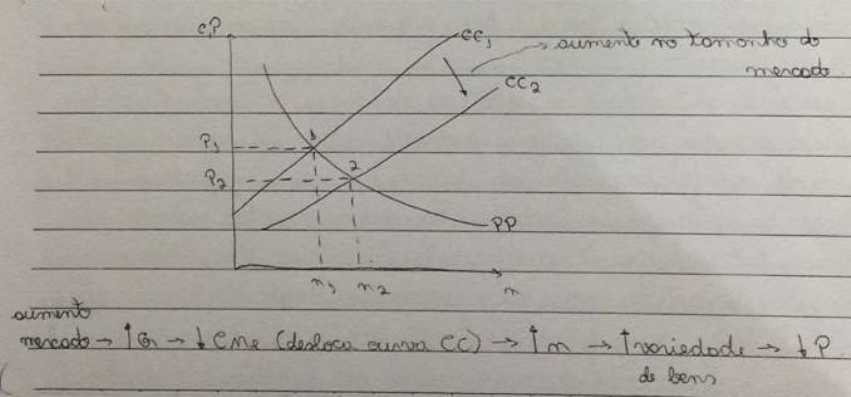 C,P
CC₁
aumento no tamanho do
mercado
CC₂
P₁
1
P₂
2
PP
n₁ n₂ n
aumento
mercado → ↑Q → ↓ CMe (desloca curva CC) → ↑n → ↑variedade → ↓ P
de bens